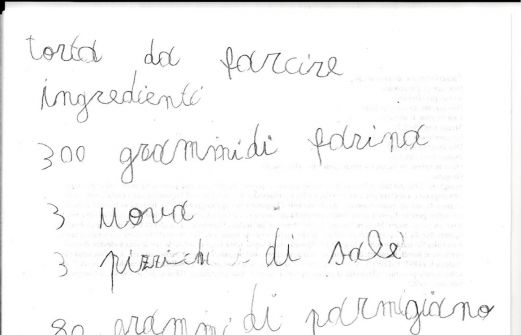 torta da farcire
ingredienti
300 grammi di farina
3 uova
3 pizzichi di sale
80 grammi di parmigiano